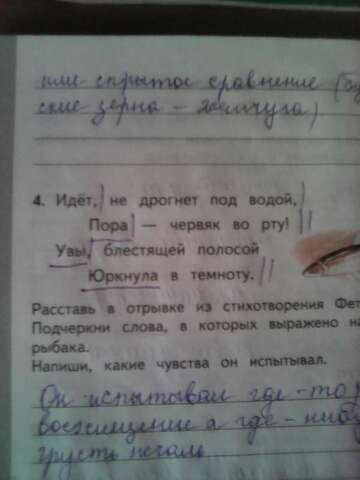 или скрытое сравнение
ские зерна – жемчуга)
4. Идёт, не дрогнет под водой,
Пора — червяк во рту!
Увы, блестящей полосой
Юркнула в темноту.
Расставь в отрывке из стихотворения Фет
Подчеркни слова, в которых выражено на
рыбака.
Напиши, какие чувства он испытывал.
Он испытывал где-то
восхищение а где-ниб
грусть печаль